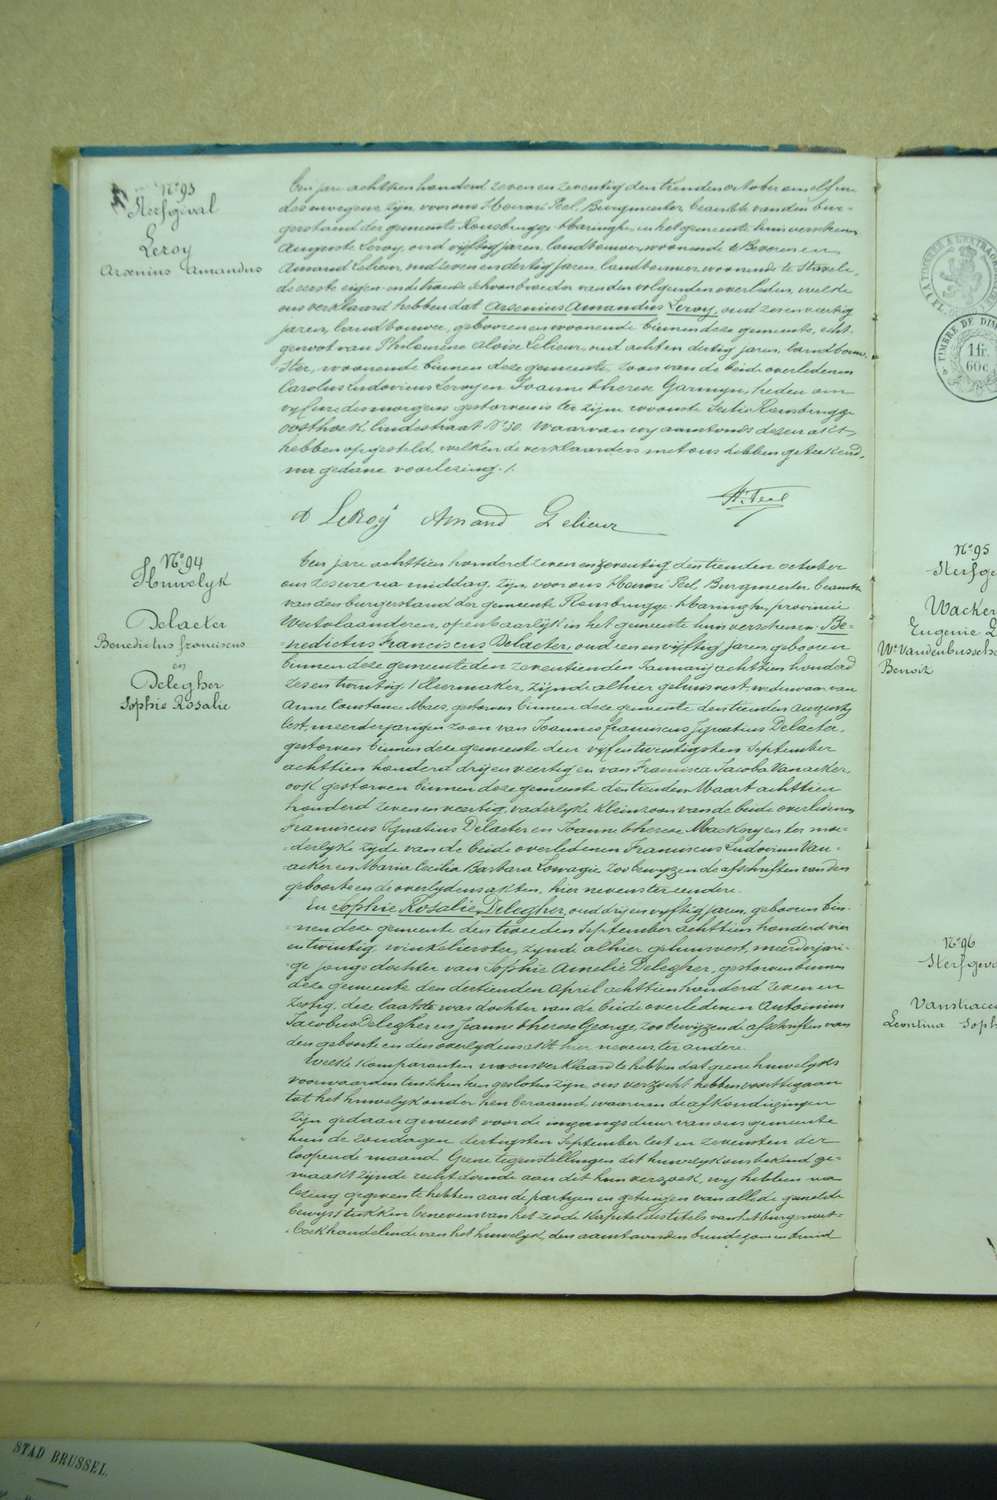 N° 93
Sterfgeval
Leroy
Arsenius Amandus
Een jare achttien honderd zeven en zeventig den tienden october om elf ure
des morgens zyn voor ons Henri Peel, Burgmeester beambte van den bur-
gerstand der gemeente Rousbrugge-Haringhe, in het gemeente huis verschenen
Auguste Leroy, oud vyftig jaren, landbouwer, woonende te Beveren en
Amand Lelieur, oud zeven en dertig jaren, landbouwer woonende te Stavele,
de eerste eigen en de tweede schoonbroeder van den volgenden overleden, welke
ons verklaard hebben dat Arsenius Amandus Leroy, oud zes en veertig
jaren, landbouwer, geboren en woonende binnen deze gemeente, echt-
genoot van Philomene Aloise Lelieur, oud acht en dertig jaren, landbouw-
ster, woonende binnen deze gemeente, zoon van de beide overledenen
Carolus Ludovicus Leroy en Joanna Therese Garmyn, heden om
vyf ure des morgens gestorven is ter zyne woonste Sectie Rousbrugge
oosthoek, landestraat N° 30. Waarvan wy aanstonds dezen akt
hebben opgesteld, welken de verklaarders met ons hebben geteekend,
na gedane voorlezing ./.
H. Peel
A Leroy Amand Lelieur
N° 94
Huwelyk
Delaeter
Benedictus franciscus
en
Delegher
Sophie Rosalie
Een jare achttien honderd zeven en zeventig den tienden october
om zes ure na middag, zyn voor ons Henri Peel, Burgmeester beambte
van den burgerstand der gemeente Rousbrugge-Haringhe, provincie
Westvlaanderen, openbaarlyk in het gemeente huis verschenen: Be-
nedictus Franciscus Delaeter, oud een en vyftig jaren, geboren
binnen deze gemeente den zeventienden January achttien honderd
zes en twintig, kleermaker, zynde alhier gehuisvest, weduwaar van
Anne Constance Maes, gestorven binnen deze gemeente den tienden augusty
lest, meerderjarigen zoon van Joannes franciscus Ignatius Delaeter,
gestorven binnen deze gemeente den vyf en twintigsten September
achttien honderd dry en veertig en van Francisca Jacoba Vanacker,
ook gestorven binnen deze gemeente den tienden Maart achttien
honderd zeven en veertig, vaderlyke kleinzoon van de beide overledenen
Franciscus Ignatius Delaeter en Joanne therese Mackery en ter moe-
derlyke zyde van de beide overledenen Franciscus Ludovicus Van-
acker en Maria Cecilia Barbara Lowagie zoo bewyzen de afschriften van den
geboorte en de overlydens akten, hier nevens ter eendere.
En Sophie Rosalie Delegher, oud dry en vyftig jaren, geboren bin-
nen deze gemeente den tweeden September achttien honderd vier
en twintig, winkelierster, zynde alhier gehuisvest, meerderjari-
ge jonge dochter van Sophie Amelie Delegher, gestorven binnen
deze gemeente den dertienden April achttien honderd zeven en
zestig, deze laatste was dochter van de beide overledenen Antonius
Jacobus Delegher en Jeanne therese George, zoo bewyzen de afschriften van
den geboorte en den overlydens akt hier nevens ter andere.
Welke komparanten na ons verklaard te hebben dat geene huwelyks
voorwaarden tusschen hen gesloten zyn, ons verzocht hebben voort te gaan
tot het huwelyk onder hen beraamd, waarvan de afkondigingen
zyn gedaan geweest voor de ingangsdeur van ons gemeente
huis de zondagen dertigsten September lest en zevensten der
loopende maand. Geene tegenstellingen dit huwelyk ons bekend ge-
maakt zynde recht doende aan dit hun verzoek, wy hebben na
lezing gegeven te hebben aan de partyen en getuigen van alle de gemelde
bewysstukken benevens van het zesde kapitel des titels van het burger wet-
boek handelende van het huwelyk, den aanstaanden bruidegom en bruid
TIMBRE DE DIM
1 fr.
60 c.
N° 95
Sterfge
Wacker
Eugenie L
We Vandenbussche
Benoit
N° 96
Sterfgeva
Vanstracee
Leontina Soph
STAD BRUSSEL.